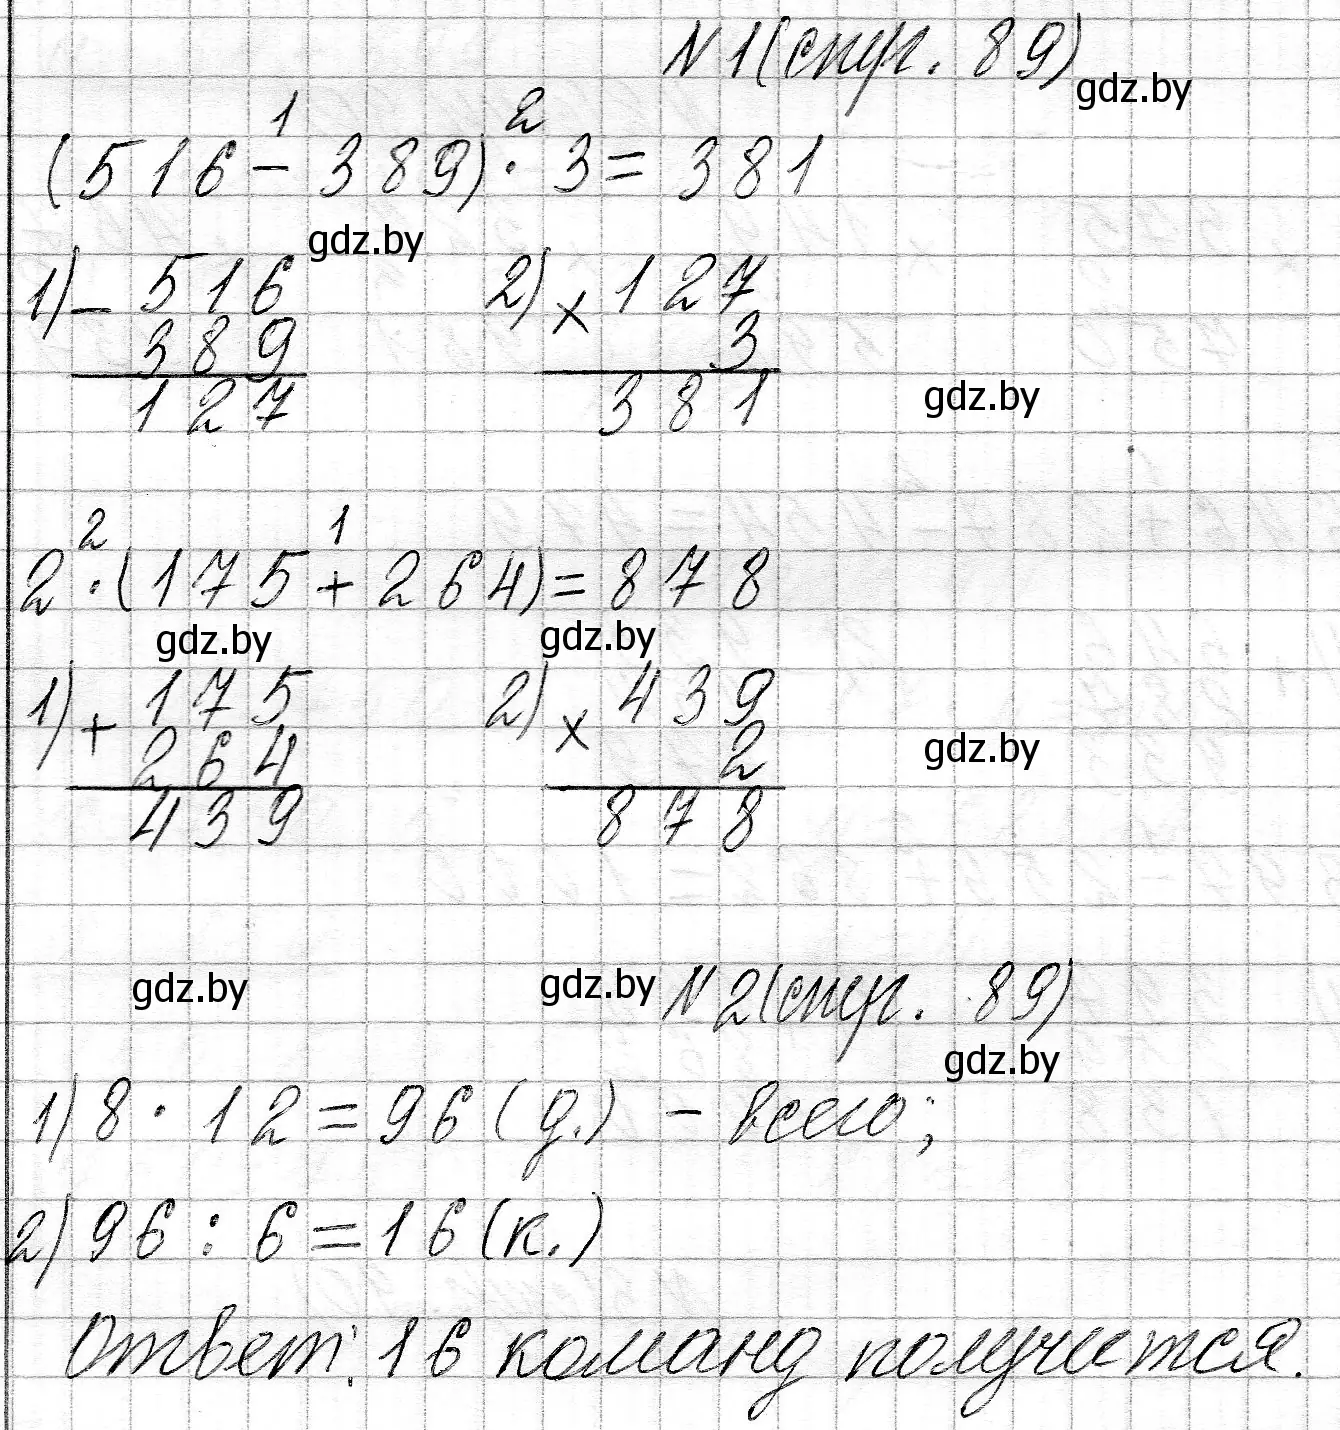 N 1 (стр. 89)
gdz.by
1 2
(516 - 389) · 3 = 381
gdz.by
1) - 516 2) × 127
389 3
127 381
gdz.by
2 1
2 · (175 + 264) = 878
gdz.by gdz.by
1) + 175 2) × 439
264 2
gdz.by
439 878
gdz.by gdz.by N 2 (стр. 89)
gdz.by
1) 8 · 12 = 96 (д.) - всего;
2) 96 : 6 = 16 (к.)
Ответ: 16 команд получится.